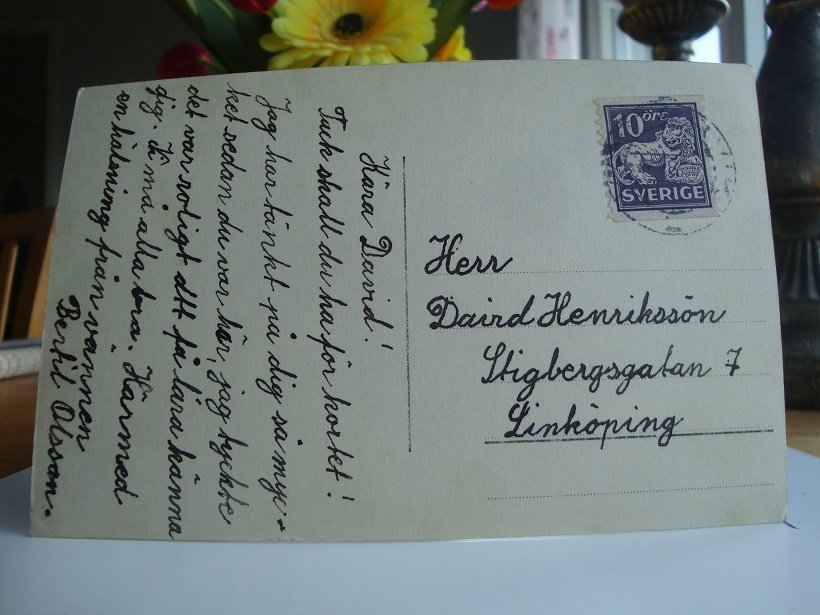 Kära David!
Tack skall du ha för kortet!
Jag har tänkt på dig så myc-
ket sedan du var här, jag tyckte
det var roligt att få lära känna
dig. Vi må alla bra. Härmed
en hälsning från vännen
Bertil Olsson.
10 öre
SVERIGE
Herr
David Henriksson
Stigbergsgatan 7
Linköping